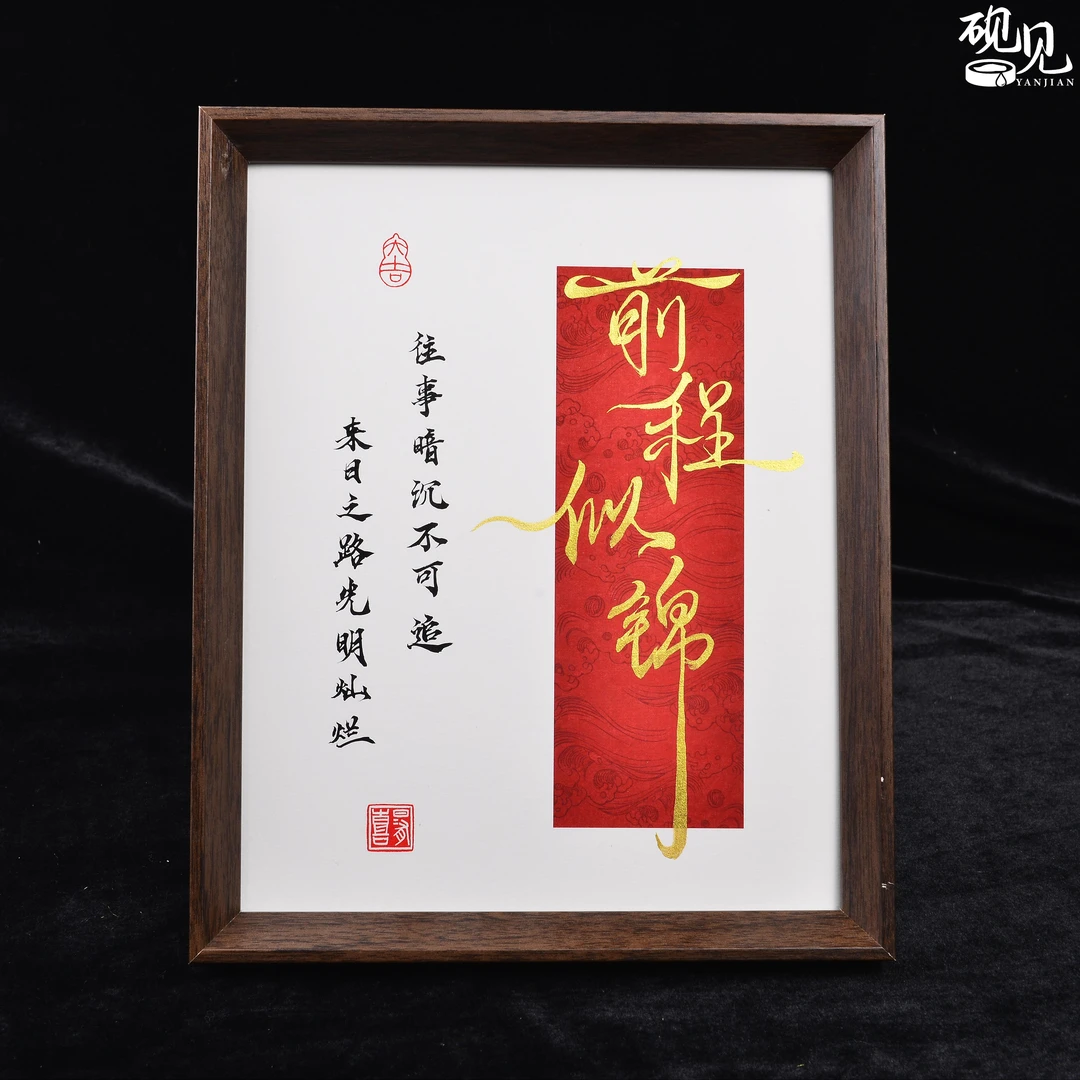 砚见
YANJIAN
前程似锦
大吉
往事暗沉不可追
来日之路光明灿烂